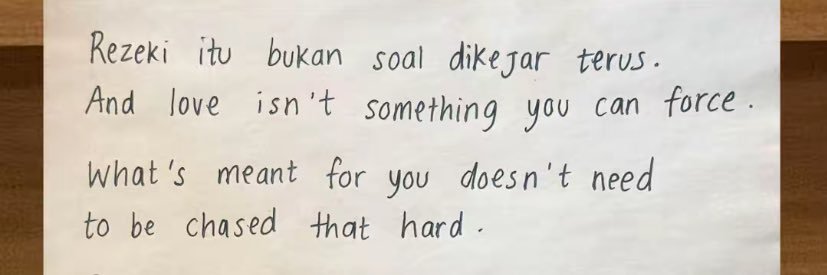 Rezeki itu bukan soal dikejar terus.
And love isn't something you can force.
What's meant for you doesn't need
to be chased that hard.